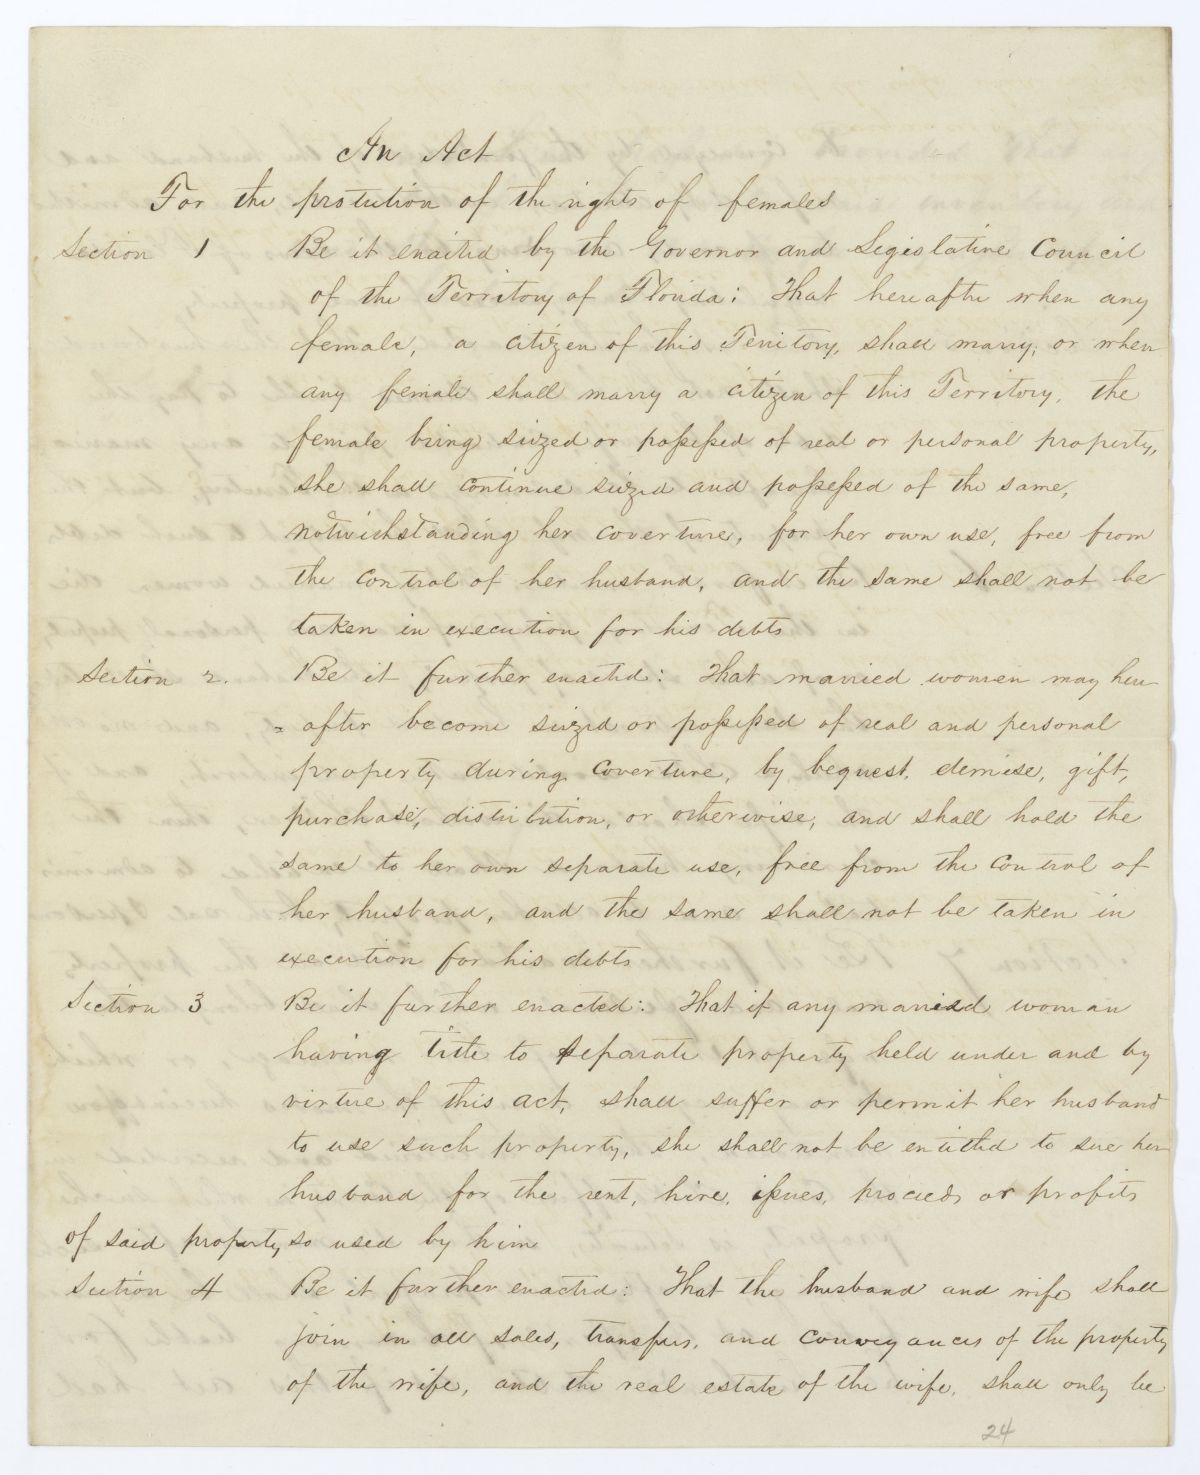 An Act
For the protection of the rights of females
Section 1 Be it enacted by the Governor and Legislative Council
of the Territory of Florida: That hereafter when any
female, a citizen of this Territory, shall marry, or when
any female shall marry a citizen of this Territory, the
female being seized or possessed of real or personal property,
she shall continue seized and possessed of the same,
notwithstanding her coverture, for her own use, free from
the control of her husband, and the same shall not be
taken in execution for his debts
Section 2. Be it further enacted: That married women may here
= after become seized or possessed of real and personal
property during coverture, by bequest, demise, gift,
purchase, distribution, or otherwise, and shall hold the
same to her own separate use, free from the control of
her husband, and the same shall not be taken in
execution for his debts
Section 3 Be it further enacted: That if any married woman
having title to separate property held under and by
virtue of this act, shall suffer or permit her husband
to use such property, she shall not be entitled to sue her
husband for the rent, hire, issues, proceeds or profits
of said property so used by him
Section 4 Be it further enacted: That the husband and wife shall
join in all sales, transfers, and conveyances of the property
of the wife, and the real estate of the wife, shall only be
24